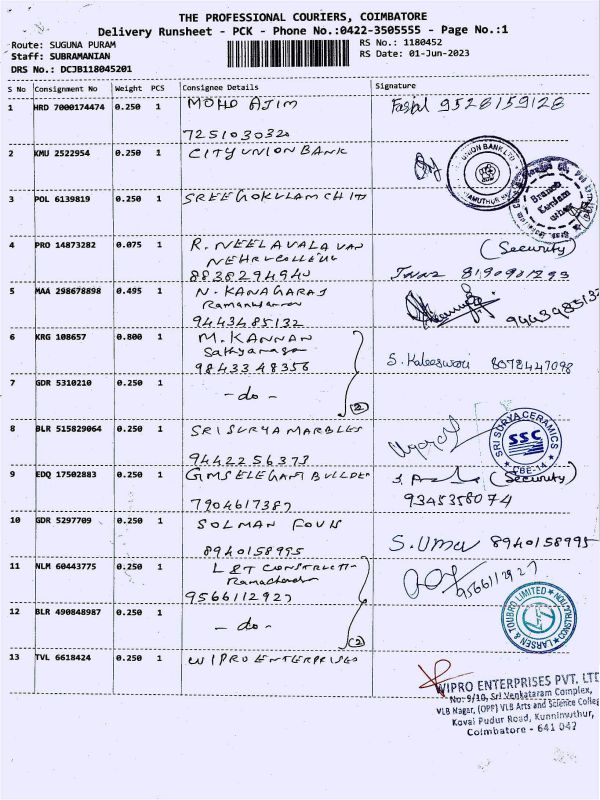 THE PROFESSIONAL COURIERS, COIMBATORE
Delivery Runsheet - PCK - Phone No.:0422-3505555 - Page No.:1
Route: SUGUNA PURAM
Staff: SUBRAMANIAN
DRS No.: DCJB118045201
RS No.: 1180452
RS Date: 01-Jun-2023
S No Consignment No Weight PCS Consignee Details Signature
1 HRD 7000174474 0.250 1 MOHD AJIM 9526159128
7251030320
2 KMU 2522954 0.250 1 CITY UNION BANK
UNION BANK LTD
3 POL 6139819 0.250 1 SREE GOKULAM CHIT
Branch
4 PRO 14873282 0.075 1 R. NEELAVALAVAN (Security)
NEHRU COLLEGE
8838294940
5 MAA 298678898 0.495 1 N. KANAGARAJ
9443485132 9443485132
6 KRG 108657 0.800 1 M. KANNAN
9843348356 S. Kaleeswari 8078447098
7 GDR 5310210 0.250 1 -do- (2)
8 BLR 515829064 0.250 1 SRI SURYA MARBLES
9442256373
SRI SURYA CERAMICS
SSC
CBE-14
9 EDQ 17502883 0.250 1 GMS ELEGANT BUILDER (Security)
7904617387 9345358074
10 GDR 5297709 0.250 1 SOLMAN
8940158995 S. Uma 8940158995
11 NLM 60443775 0.250 1 L&T CONSTRUCTI
9566112927 9566112927
12 BLR 490848987 0.250 1 -do- (2)
LARSEN & TOUBRO LIMITED
CONSTRUCTION
13 TVL 6618424 0.250 1 WIPRO ENTERPRISES
WIPRO ENTERPRISES PVT. LTD
No: 9/10, Sri Venkataram Complex,
VLB Nagar, (OPP) VLB Arts and Science College
Kovai Pudur Road, Kunnimuthur,
Coimbatore - 641 042